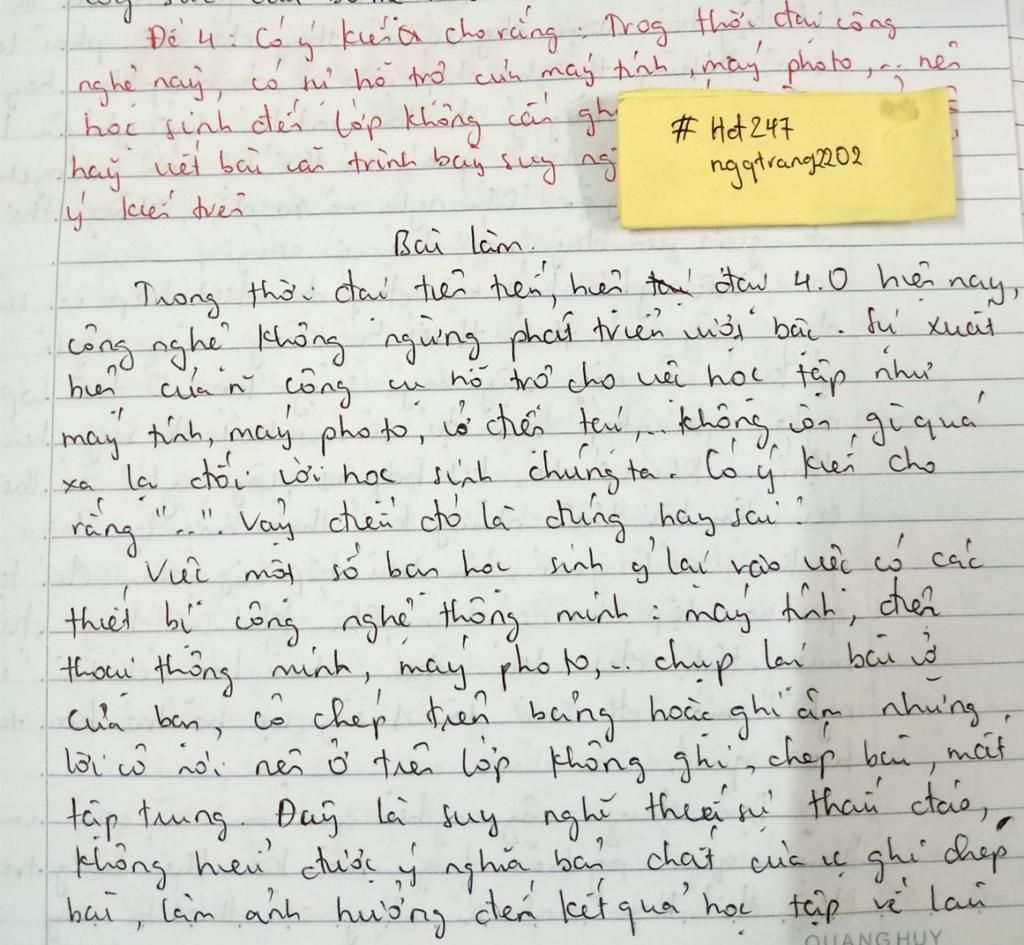 Đề 4: Có ý kiến cho rằng: Trog thời đại công
nghệ này, có sự hỗ trợ của máy tính, máy photo,... nên
học sinh đến lớp không cần gh
hãy viết bài văn trình bày suy ng
ý kiến trên
# Hot247
ngqtrang2202
Bài làm.
Trong thời đại tiên tiến, hiện đại 4.0 hiện nay,
công nghệ không ngừng phát triển vượt bậc. Sự xuất
hiện của n~ công cụ hỗ trợ cho việc học tập như
máy tính, máy photo, cờ điện tử,... không còn gì quá
xa lạ đối với học sinh chúng ta. Có ý kiến cho
rằng "..." Vậy điều đó là đúng hay sai?
Việc một số bạn học sinh ỷ lại vào việc có các
thiết bị công nghệ thông minh: máy tính, điện
thoại thông minh, máy photo,... chụp lại bài vở
của bạn, cô chép trên bảng hoặc ghi âm những
lời cô nói nên ở trên lớp không ghi, chép bài, mất
tập trung. Đây là suy nghĩ thiếu sự thấu đáo,
không hiểu được ý nghĩa bản chất của vc ghi chép
bài, làm ảnh hưởng đến kết quả học tập về lâu
QUANG HUY